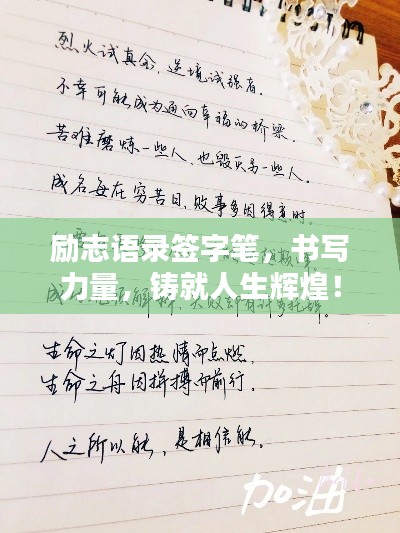 烈火试真金，逆境试强者。
不幸可能成为通向幸福的桥梁。
苦难磨炼一些人，也毁灭另一些人。
成名每在穷苦日，败事多因得意时。
励志语录签字笔，书写
力量，铸就人生辉煌！
生命之灯因热情而点燃，
生命之舟因拼搏而前行。
人之所以能，是相信能。
加油